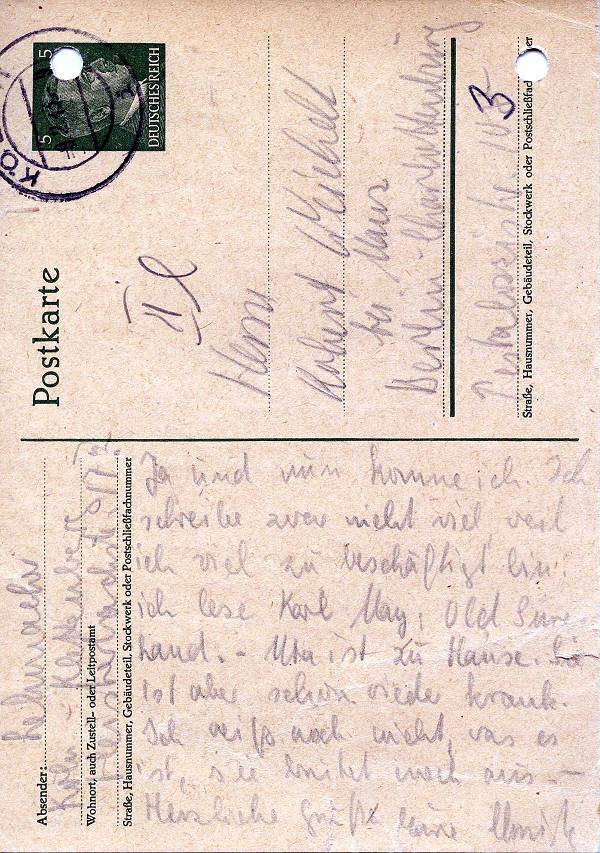 Postkarte
5
5
DEUTSCHES REICH
KÖ
II l
Herrn
Robert
bei
Berlin-Charlottenburg
3
Straße, Hausnummer, Gebäudeteil, Stockwerk oder Postschließfachnummer
Absender:
Köln-
Wohnort, auch Zustell- oder Leitpostamt
Straße, Hausnummer, Gebäudeteil, Stockwerk oder Postschließfachnummer
Ja und nun komme ich. Ich
schreibe zwar nicht viel, weil
ich viel zu beschäftigt bin
ich lese Karl May, Old Sure
hand. - Uta ist zu Hause. Sie
ist aber schon wieder krank.
Ich weiß noch nicht, was es
ist, sie noch aus. -
Herzliche Grüße eure